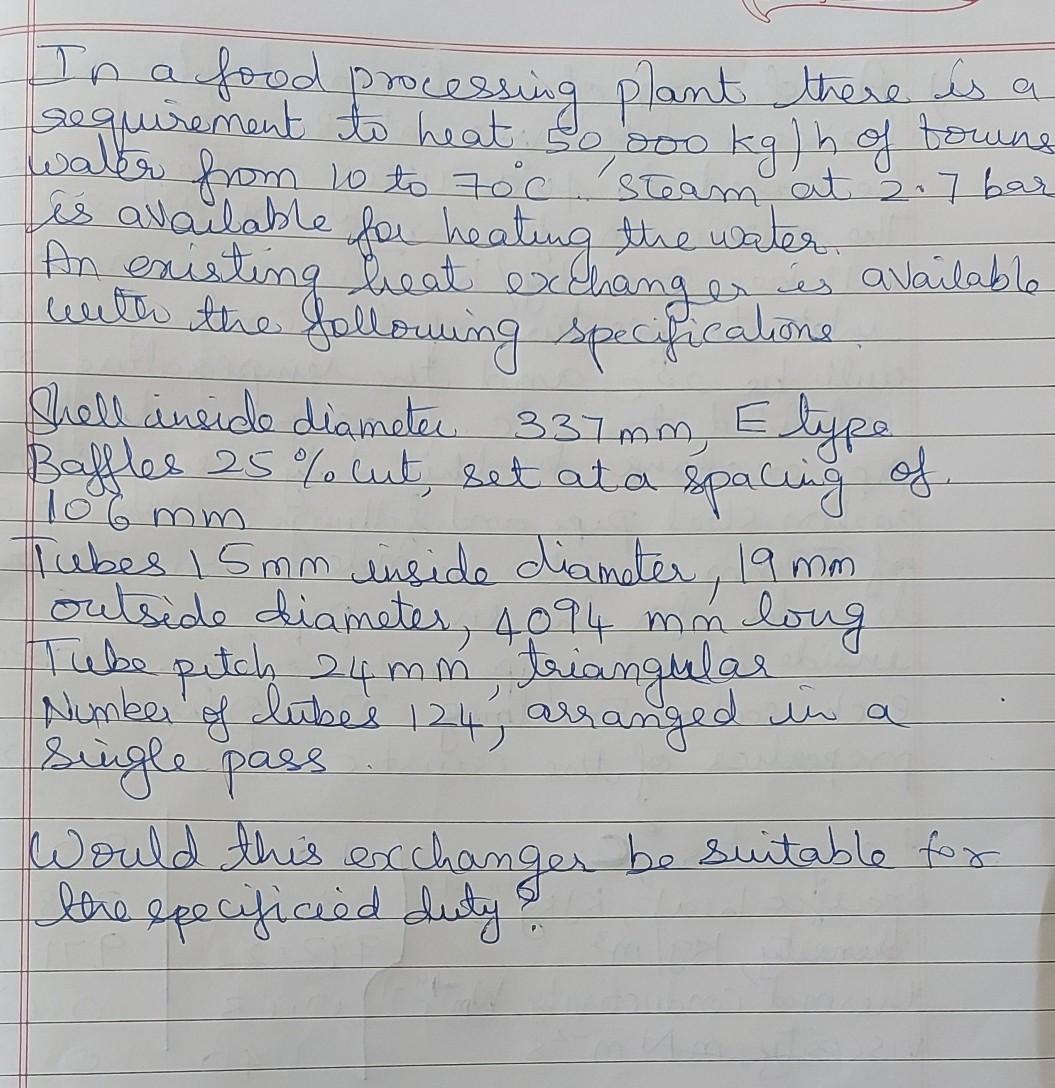 In a food processing plant there is a
requirement to heat 50,000 kg/h of towns
water from 10 to 70°C. Steam at 2.7 bar
is available for heating the water.
An existing heat exchanger is available
with the following specifications.
Shell inside diameter 337mm, E type
Baffles 25% cut, set at a spacing of
106 mm
Tubes 15mm inside diameter, 19 mm
outside diameter, 4094 mm long
Tube pitch 24mm, triangular
Number of tubes 124, arranged in a
single pass.
Would this exchanger be suitable for
the specificied duty?